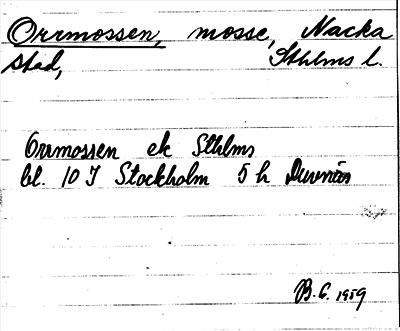 Orrmossen, mosse, Nacka
stad, Sthlms l.
Orrmossen ek Sthlms
bl. 10 I Stockholm 5 h Duvnäs
B.G. 1959